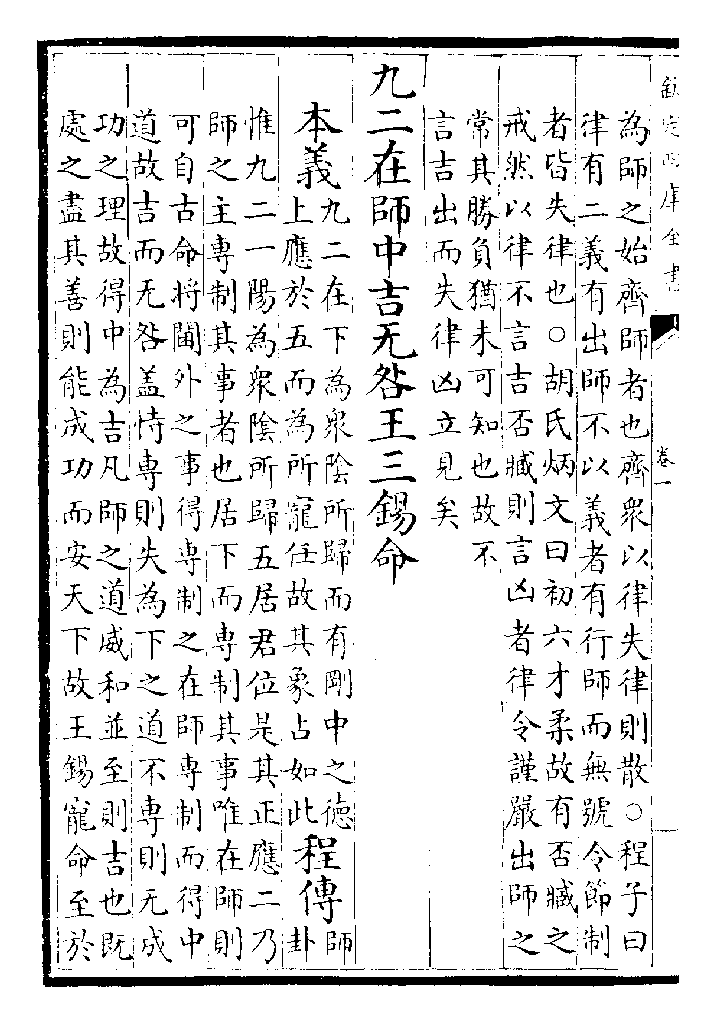 欽定四庫全書
卷一
為師之始齊師者也齊衆以律失律則散○程子曰
律有二義有出師不以義者有行師而無號令節制
者皆失律也○胡氏炳文曰初六才柔故有否臧之
戒然以律不言吉否臧則言凶者律令謹嚴出師之
常其勝負猶未可知也故不
言吉出而失律凶立見矣
九二在師中吉无咎王三錫命
本義九二在下為衆陰所歸而有剛中之徳
上應於五而為所寵任故其象占如此程傳師
卦
惟九二一陽為衆陰所歸五居君位是其正應二乃
師之主専制其事者也居下而専制其事唯在師則
可自古命將閫外之事得専制之在師専制而得中
道故吉而无咎盖恃専則失為下之道不専則无成
功之理故得中為吉凡師之道威和並至則吉也既
處之盡其善則能成功而安天下故王錫寵命至於